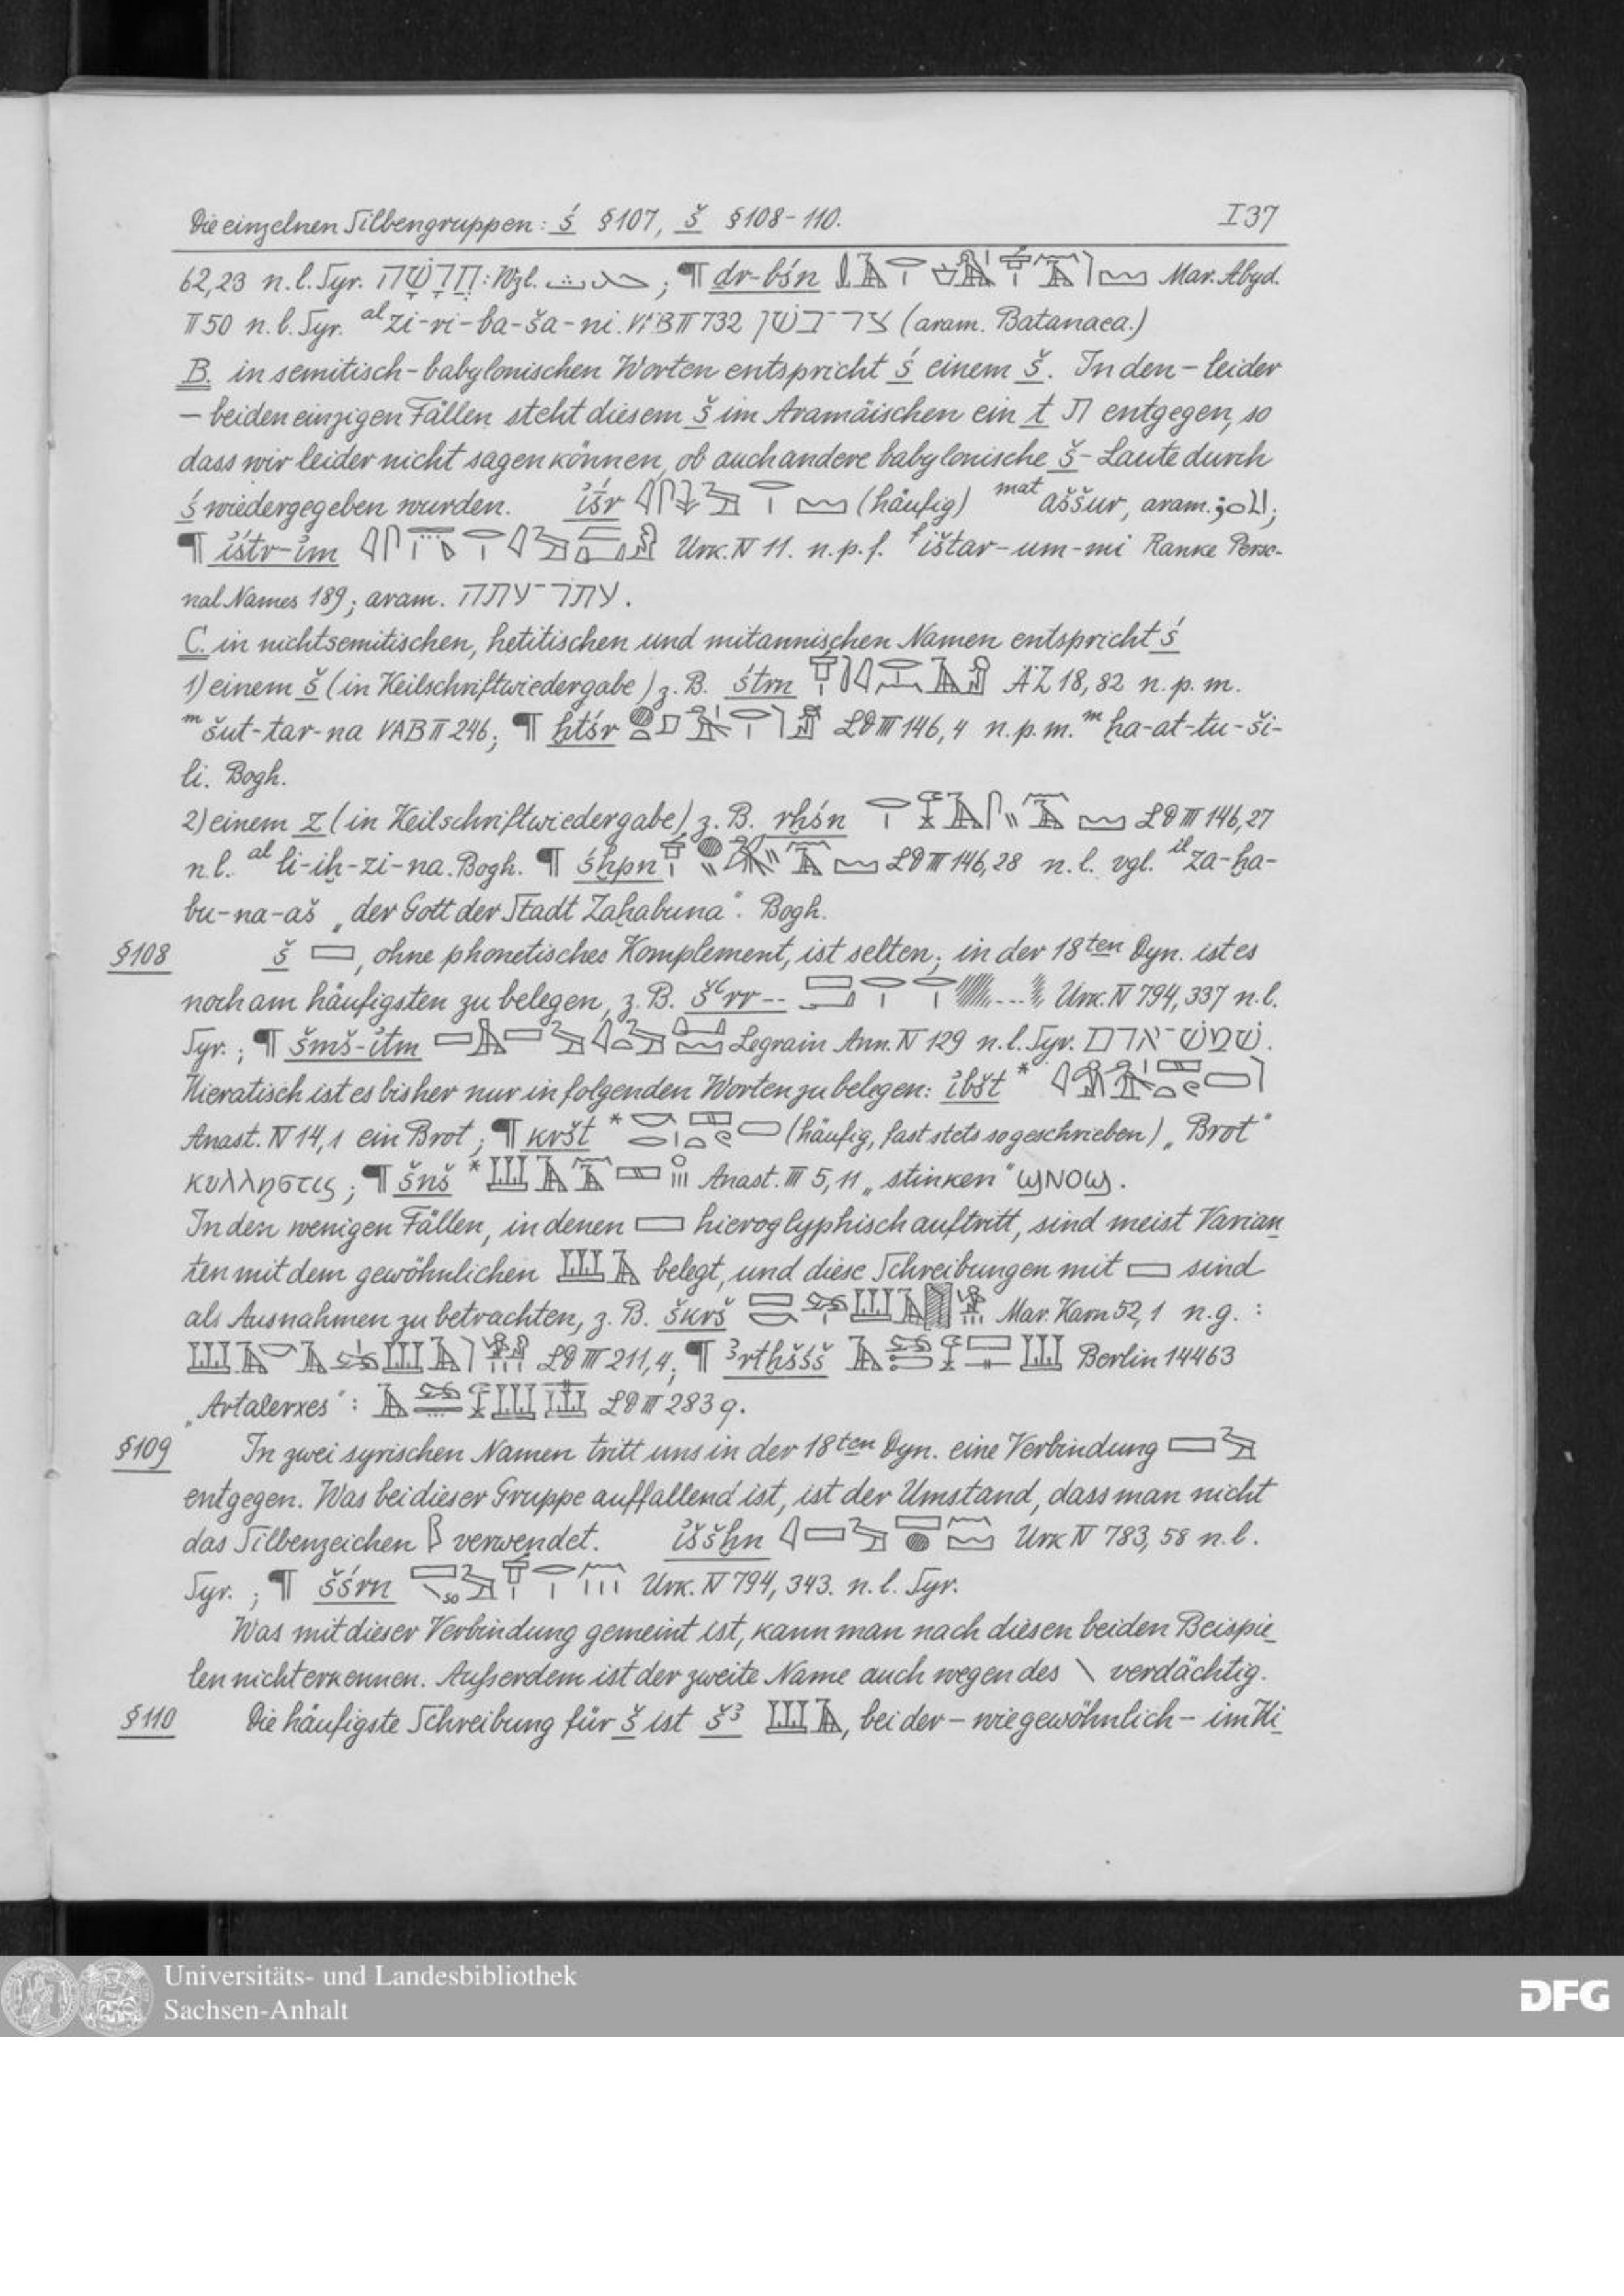 Die einzelnen Silbengruppen: ś § 107, š § 108-110. I 37
62,23 n. l. Syr. : Wzl. ; ¶ dr-bśn Mar. Abyd.
II 50 n. l. Syr. al zi-ri-ba-ša-ni. VAB II 732 (aram. Batanaea.)
B. in semitisch-babylonischen Worten entspricht ś einem š. In den – leider
– beiden einzigen Fällen steht diesem š im Aramäischen ein t ת entgegen, so
dass wir leider nicht sagen können, ob auch andere babylonische š-Laute durch
ś wiedergegeben wurden. (häufig) mat aššur, aram.
¶ Urk. IV 11. n. p. f. f ištar-um-mi Ranke Perso-
nal Names 189; aram.
C. in nichtsemitischen, hetitischen und mitannischen Namen entspricht ś
1) einem š (in Keilschriftwiedergabe) z. B. śtrn ÄZ 18, 82 n. p. m.
m šut-tar-na VAB II 246; ¶ ḫtśr LD III 146, 4 n. p. m. m ḫa-at-tu-ši-
li. Bogh.
2) einem z (in Keilschriftwiedergabe), z. B. rḫśn LD III 146, 27
n. l. al li-iḫ-zi-na. Bogh. ¶ śḫpn LD III 146, 28 n. l. vgl. il za-ḫa-
bu-na-aš „der Gott der Stadt Zaḫabuna". Bogh.
§108 š , ohne phonetisches Komplement, ist selten; in der 18ten Dyn. ist es
noch am häufigsten zu belegen, z. B. šꜥrr-- Urk. IV 794, 337 n. l.
Syr.; ¶ šmš-ỉtm Legrain Ann. IV 129 n. l. Syr. שׁמשׁ־אדם.
Hieratisch ist es bisher nur in folgenden Worten zu belegen: ỉbšt *
Anast. IV 14, 1 ein Brot; ¶ kršt * (häufig, fast stets so geschrieben) „Brot"
κυλληστις; ¶ šnš * Anast. III 5, 11 „stinken" ϣⲛⲟϣ.
In den wenigen Fällen, in denen hieroglyphisch auftritt, sind meist Varian-
ten mit dem gewöhnlichen belegt, und diese Schreibungen mit sind
als Ausnahmen zu betrachten, z. B. škrš Mar. Karn 52, 1 n. g. :
LD III 211, 4; ¶ Berlin 14463
LD III 283 g.
§109 In zwei syrischen Namen tritt uns in der 18ten Dyn. eine Verbindung
entgegen. Was bei dieser Gruppe auffallend ist, ist der Umstand, dass man nicht
das Silbenzeichen verwendet. ỉššḫn Urk IV 783, 58 n. l.
Syr. ; ¶ šśrn so Urk. IV 794, 343. n. l. Syr.
Was mit dieser Verbindung gemeint ist, kann man nach diesen beiden Beispie-
len nicht erkennen. Außerdem ist der zweite Name auch wegen des \ verdächtig.
§110 Die häufigste Schreibung für š ist šꜣ , bei der – wie gewöhnlich – im Hi-
Universitäts- und Landesbibliothek
Sachsen-Anhalt
DFG